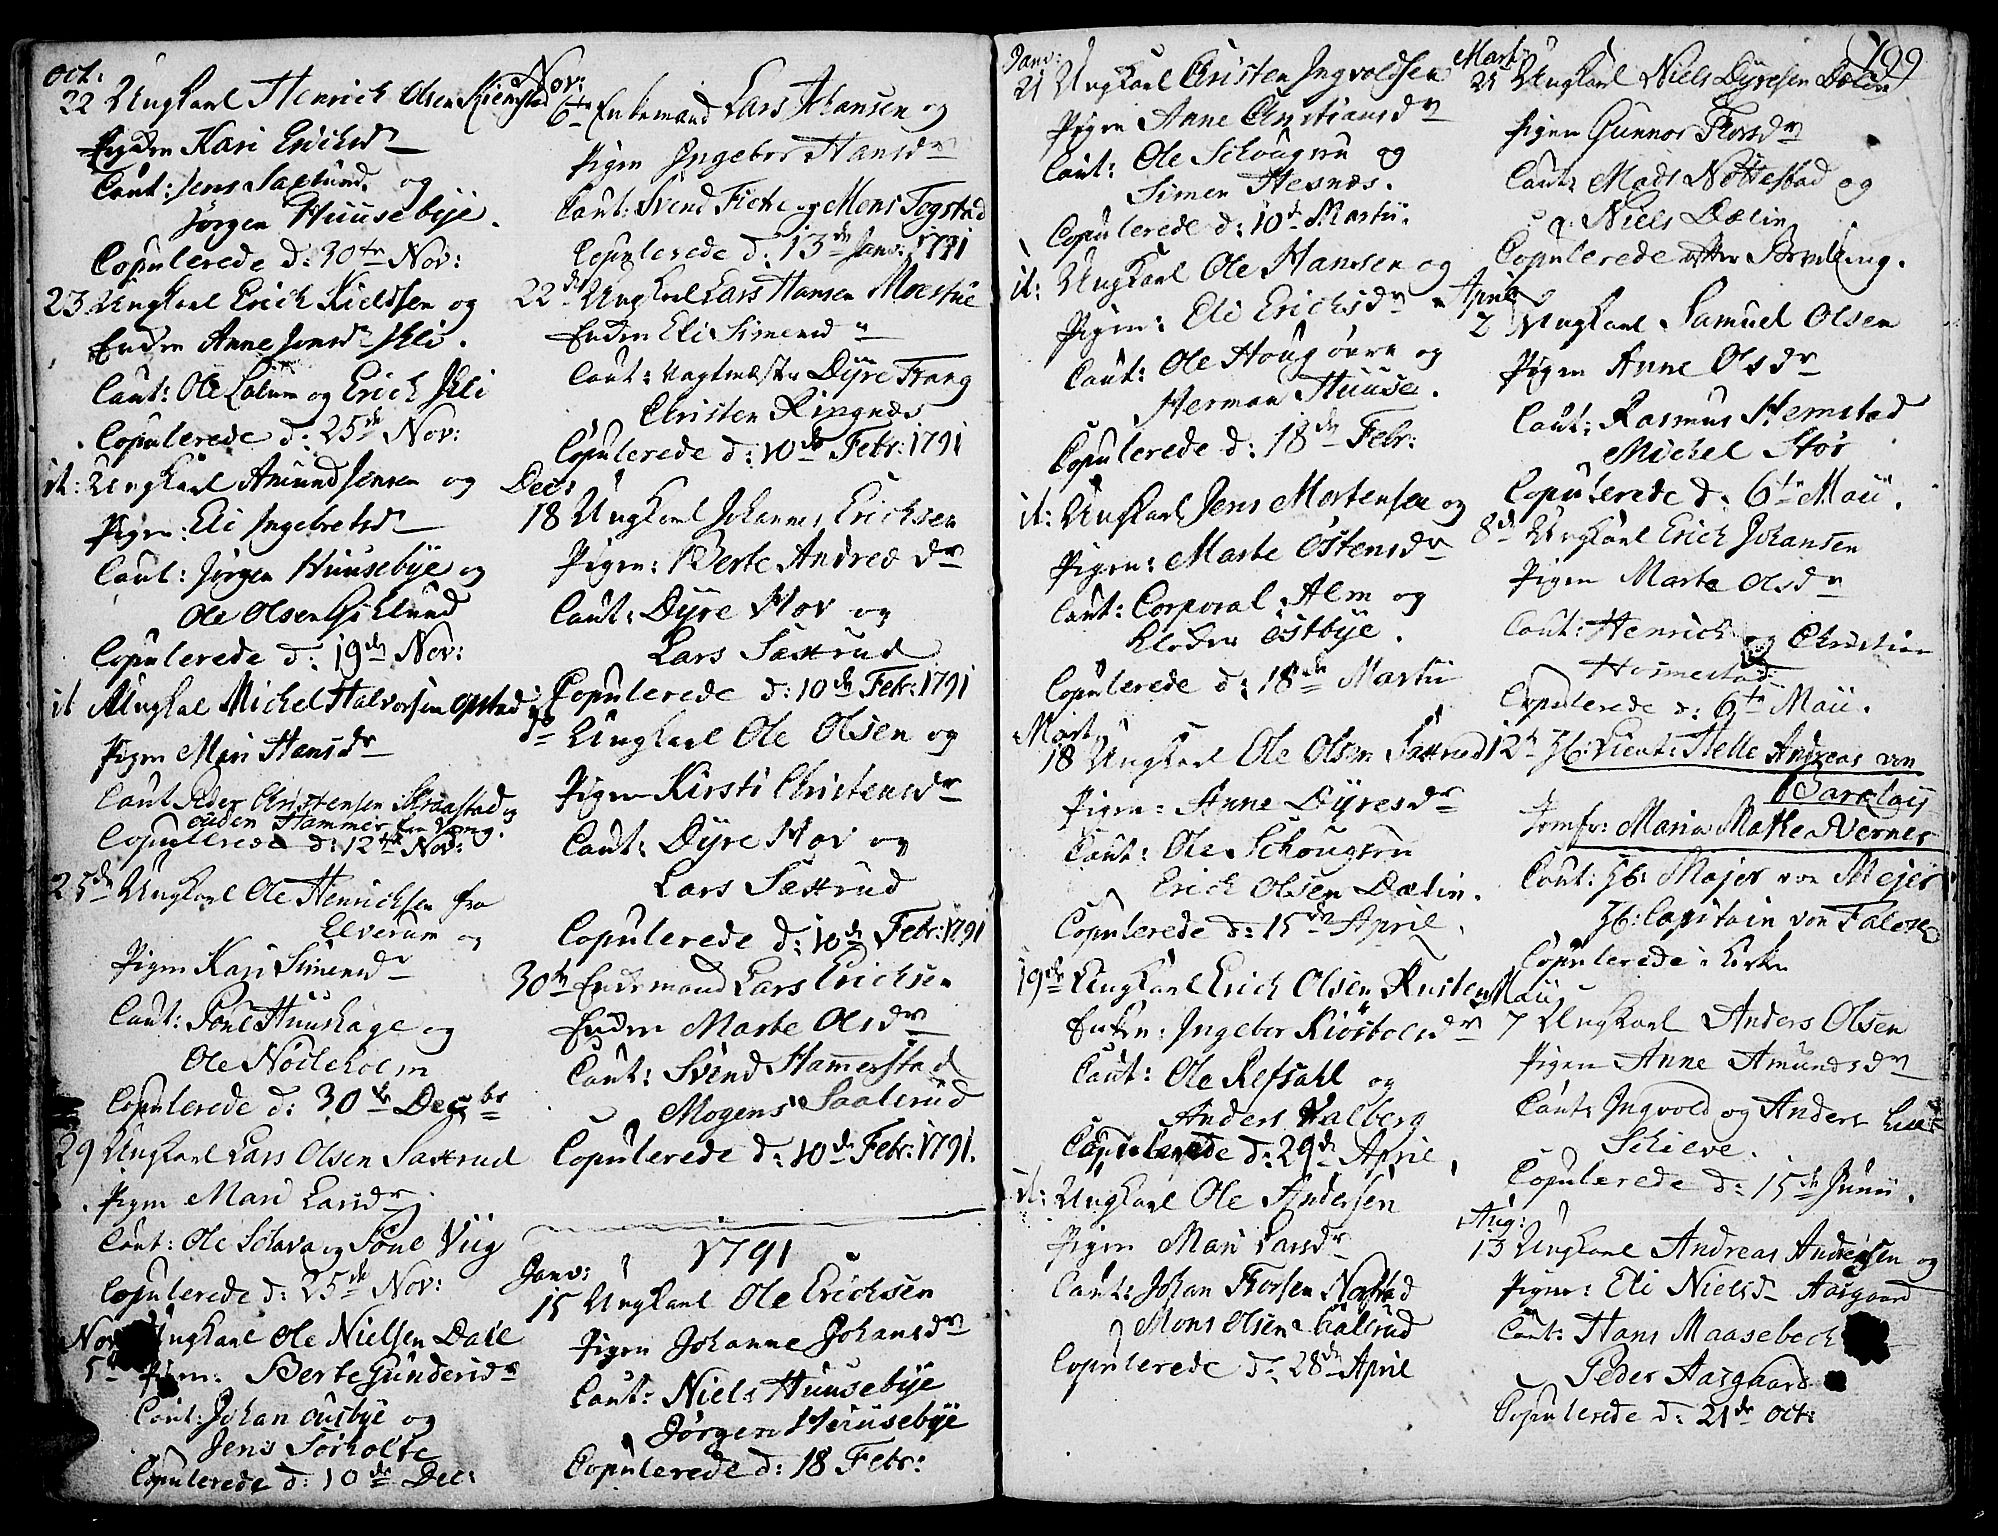 Oct:
22 Ungkarl Henrich Olsen Kiemstad
Pigen Kari Erichsdr
Caut: Jens Saxlund og
Jørgen Huusebÿe.
Copulerede d: 30te Nov:
23 Ungkarl Erich Kieldsen og
Enken Anne Jonsdr Skli.
Caut: Ole Lolum og Erich Skli
Copulerede d: 25de Nov:
it: Ungkarl Amund Jensen og
Pigen: Eli Ingebretsdr
Caut: Jørgen Huusebÿe og
Ole Olsen Giklund
Copulerede d: 19de Nov:
it Ungkal Michel Halvorsen Opstad
Pigen Mari Hansdr
Caut Peder Christensen Skraastad og
Ouden Hammer fra Vang.
Copulerede d: 12te Nov:
25de Ungkarl Ole Henrichsen fra
Elverum og
Pigen Kari Simensdr
Caut: Poul Huushage og
Ole Nodleholm
Copulerede d: 30te Decbr
29 Ungkarl Lars Olsen Sastrud
Pigen Mari Larsdr
Caut: Ole Sclava og Poul Viig
Copulerede d: 25de Nov:
Nov Ungkarl Ole Nielsen Dale
5te Pigen: Berte Gundersdr
Caut: Johan Ousbye og
Jens Sørholte
Copulerede d: 10de Dec:
Nov:
6te Enkemand Lars Johansen og
Pigen Ingebor Hansdr
Caut: Svend Ficke og Mons Togstad
Copulerede d: 13de Janv: 1791
22de Ungkarl Lars Hansen Moestue
Enken Eli Simensdr
Caut: Vagtmester Dÿre Frang
Christen Ringnæs
Copulerede d: 10de Febr: 1791
Decr
18 Ungkarl Johannes Erichsen
Pigen: Berte Andreædr
Caut: Dÿre Hov og
Lars Sæstrud
Copulerede d: 10de Febr: 1791
do Ungkarl Ole Olsen og
Pigen Kirsti Christensdr
Caut: Dÿre Hov og
Lars Sæstrud
Copulerede d: 10de Febr: 1791
30te Enkemand Lars Erichsen
Enken Marte Olsdr
Caut: Svend Hammerstad
Mogens Saalerud
Copulerede d: 10de Febr: 1791.
1791
Janv:
15 Ungkarl Ole Erichsen
Pigen Johanne Johansdr
Caut: Niels Huusebÿe
Jørgen Huusebÿe
Copulerede d: 18 Febr:
Janv:
21 Ungkarl Christen Ingvoldsen
Pigen Anne Christiansdr
Caut: Ole Schougrn og
Simen Hesnæs.
Copulerede d: 10de Martii.
it: Ungkarl Ole Hansen og
Pigen: Eli Erichsdr
Caut: Ole Houg øvre og
Herman Huuse.
Copulerede d: 18de Febr:
it: Ungkarl Jens Mortensen og
Pigen: Marte Østensdr
Caut: Corporal Alm og
Østbye.
Copulerede d: 18de Martii
Mart
18 Ungkarl Ole Olsen Sastrud
Pigen: Anne Dÿresdr
Caut: Ole Schougrn
Erich Olsen Dælin.
Copulerede d: 15de April.
19de Ungkarl Erich Olsen Rusten
Enken: Ingebor Kiøstelsdr
Caut: Ole Refsahl og
Anders Valberg
Copulerede d: 29de April.
it: Ungkarl Ole Andersen
Pigen Mari Larsdr
Caut: Johan Thorsen Nordstad
Mons Olsen Galerud
Copulerede d: 28de April
199
Mart
25 Ungkarl Niels Dÿresen Dolin
Pigen Gunnor Thorsdr
Caut: Mads Nøttestad og
Niels Dælin
Copulerede efter Bevilling.
April
2 Ungkarl Samuel Olsen
Pigen Anne Olsdr
Caut: Rasmus Hemstad
Michel Stor
Copulerede d: 6te Maii.
8de Ungkarl Erich Johansen
Pigen Marte Olsdr
Caut: Henrich og Christian
Hormestad
Copulerede d: 6te Maii.
12te Hr: Lieut: Helle Andreas von
Barclaÿ
Jomfr: Maria Mathea Verner
Caut: Hr: Major von Mejer
Hr: Capitain von Falsen
Copulerede i Kirke
Maii
7 Ungkarl Anders Olsen
Pigen Anne Amundsdr
Caut: Ingvold og Anders
Schieve.
Copulerede d: 15de Junii.
Aug:
13 Ungkarl Andreas Andersen og
Pigen: Eli Nielsdr Aasgaard
Caut: Hans Maasebech
Peder Aasgaard
Copulerede d: 21de Oct: